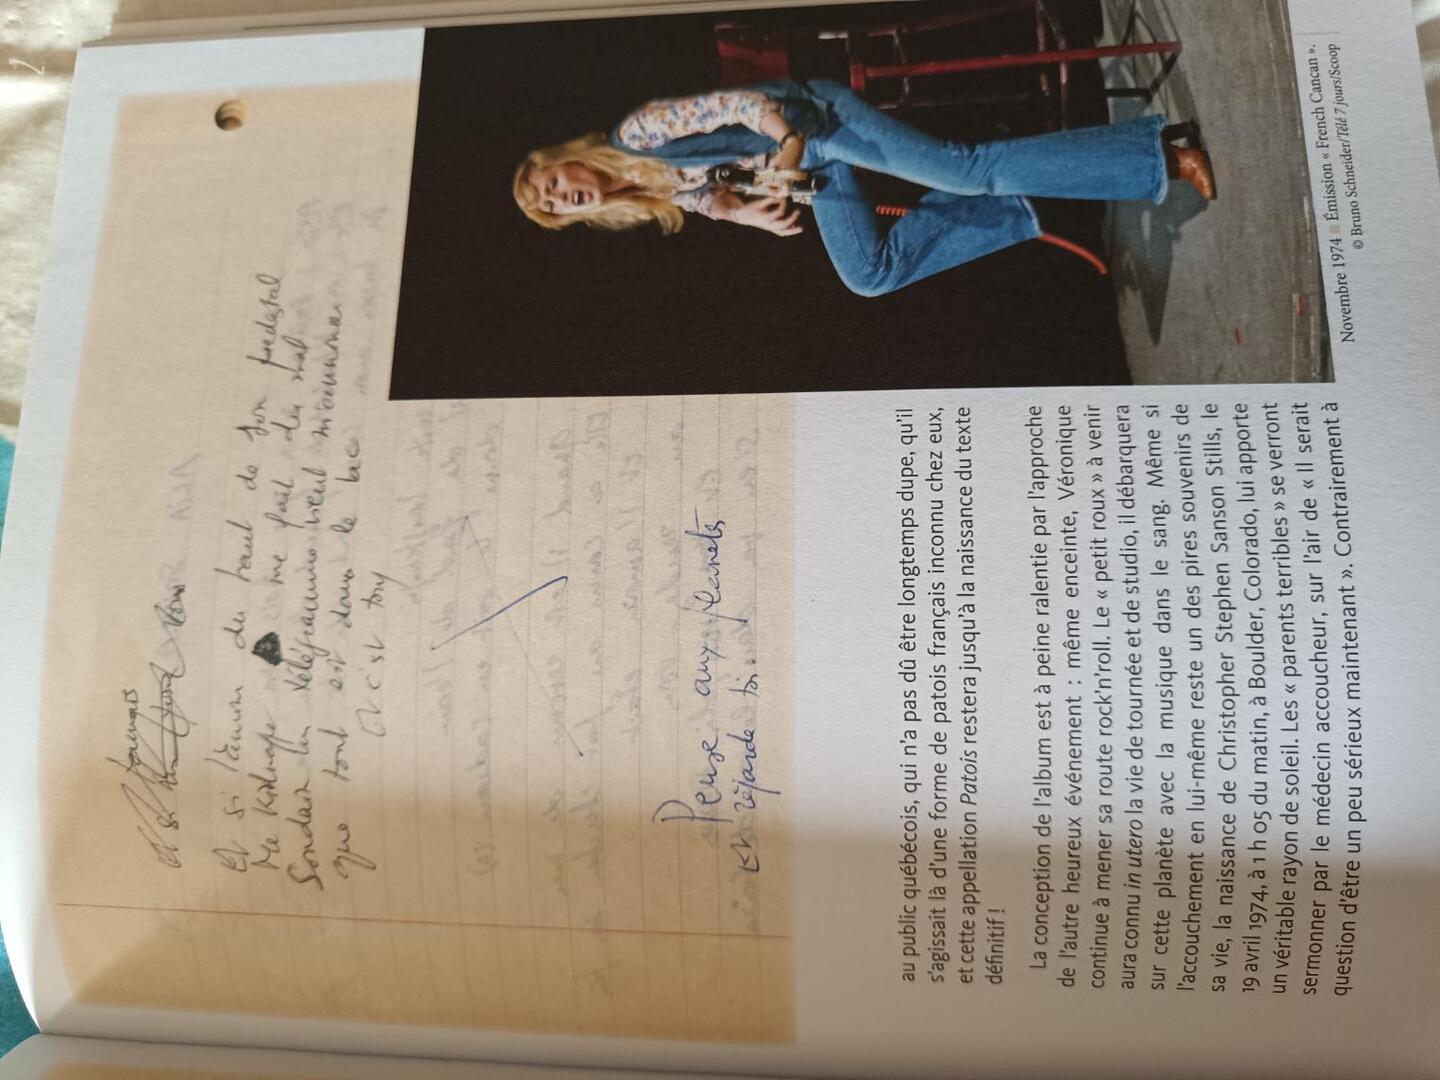 Et si l'amour du haut de son piedestal
Me kidnappe me fait du mal
Soudain
que tout est dans le lac
et c'est tout
Pense aux planets
Et regarde toi.
Novembre 1974 ■ Émission « French Cancan ».
© Bruno Schneider/Télé 7 jours/Scoop
au public québécois, qui n'a pas dû être longtemps dupe, qu'il
s'agissait là d'une forme de patois français inconnu chez eux,
et cette appellation Patois restera jusqu'à la naissance du texte
définitif !
La conception de l'album est à peine ralentie par l'approche
de l'autre heureux événement : même enceinte, Véronique
continue à mener sa route rock'n'roll. Le « petit roux » à venir
aura connu in utero la vie de tournée et de studio, il débarquera
sur cette planète avec la musique dans le sang. Même si
l'accouchement en lui-même reste un des pires souvenirs de
sa vie, la naissance de Christopher Stephen Sanson Stills, le
19 avril 1974, à 1 h 05 du matin, à Boulder, Colorado, lui apporte
un véritable rayon de soleil. Les « parents terribles » se verront
sermonner par le médecin accoucheur, sur l'air de « Il serait
question d'être un peu sérieux maintenant ». Contrairement à